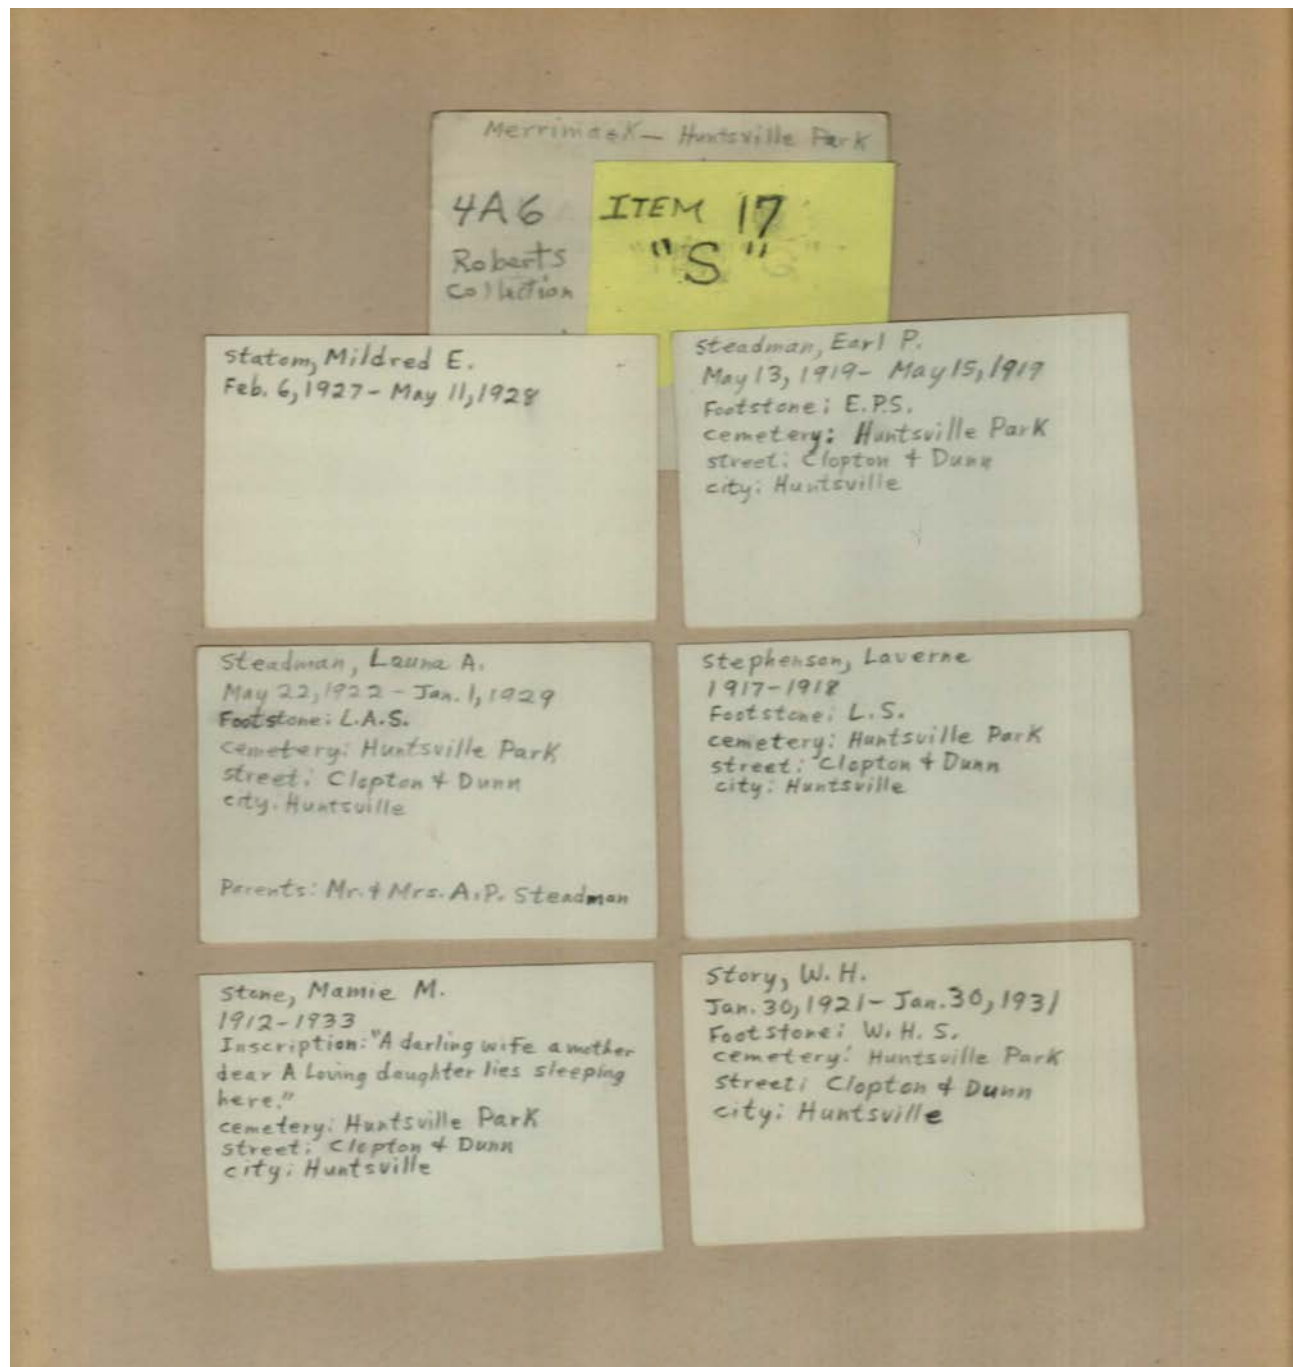 Merrimack— Huntsville Park
4A6
Roberts
Collection
ITEM 17
"S"
Statom, Mildred E.
Feb. 6, 1927 - May 11, 1928
Steadman, Earl P.
May 13, 1919 - May 15, 1919
Footstone: E.P.S.
cemetery: Huntsville Park
street: Clopton & Dunn
city: Huntsville
Steadman, Launa A.
May 22, 1922 - Jan. 1, 1929
Footstone: L.A.S.
cemetery: Huntsville Park
street: Clopton & Dunn
city: Huntsville
Parents: Mr. & Mrs. A.P. Steadman
Stephenson, Laverne
1917-1918
Footstone: L.S.
cemetery: Huntsville Park
street: Clopton & Dunn
city: Huntsville
Stone, Mamie M.
1912-1933
Inscription: "A darling wife a mother
dear A Loving daughter lies sleeping
here."
cemetery: Huntsville Park
street: Clopton & Dunn
city: Huntsville
Story, W. H.
Jan. 30, 1921 - Jan. 30, 1931
Footstone: W. H. S.
cemetery: Huntsville Park
street: Clopton & Dunn
city: Huntsville